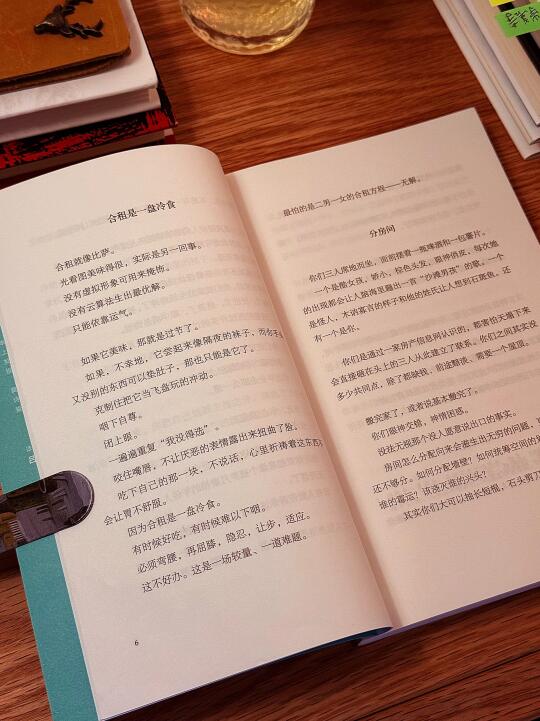 合租是一盘冷食
合租就像比萨。
光看图美味得很，实际是另一回事。
没有虚拟形象可用来掩饰。
没有云算法生出最优解。
只能依靠运气。
如果它美味，那就是过节了。
如果，不幸地，它尝起来像隔夜的袜子，而你手
又没别的东西可以垫肚子，那也只能是它了。
克制住把它当飞盘玩的冲动。
咽下自尊。
闭上眼。
一遍遍重复“我没得选”。
咬住嘴唇，不让厌恶的表情露出来扭曲了脸。
吃下自己的那一块，不说话，心里祈祷着这东西
会让胃不舒服。
因为合租是一盘冷食。
有时候好吃，有时候难以下咽。
必须弯腰，再屈膝，隐忍，让步，适应。
这不好办。这是一场较量、一道难题。
6
最怕的是二男一女的合租方程——无解。
分房间
你们三人席地而坐，面前摆着一瓶啤酒和一包薯片。
一个是酷女孩，娇小，棕色头发，眼神俏皮，每次她
的出现都会让人脑海里蹦出一首“沙滩男孩”的歌。一个
是怪人，木讷寡言的样子和他的姓氏让人想到石斑鱼。还
有一个是你。
你们是通过一家房产信息网认识的，都害怕天塌下来
会直接砸在头上的三人从此建立了联系。你们之间其实没
多少共同点，除了都缺钱、前途黯淡、需要一个屋顶。
搬完家了，或者说基本搬完了。
你们眼神交错，神情困惑。
没法无视那个没人愿意说出口的事实。
房间怎么分配向来会生出无穷的问题，
还不够分。如何分配墙壁？如何统筹空间的
谁的霉运？该浇灭谁的兴头？
其实你们大可以抽长短根，石头剪刀